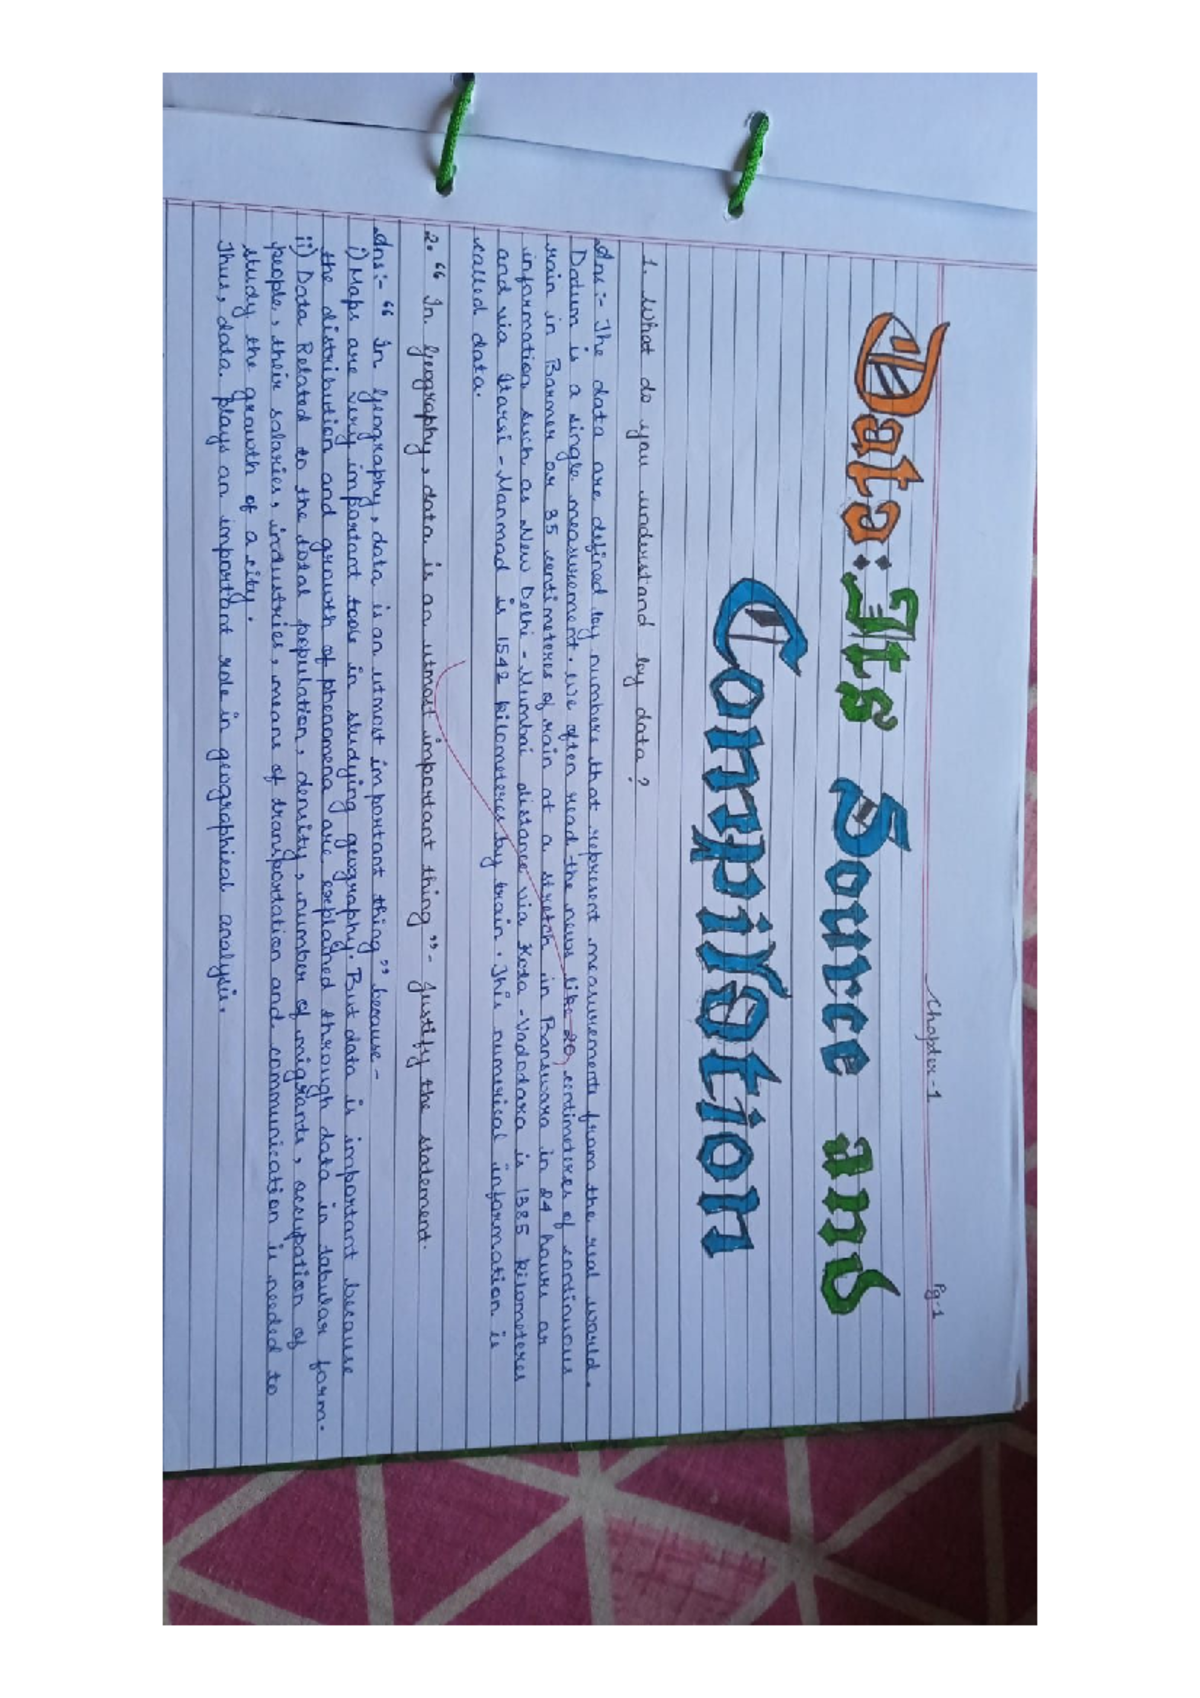 Chapter-1
Pg-1
Data: Its Source and
Compilation
1. What do you understand by data?
Ans:- The data are defined by numbers that represent measurements from the real world.
Datum is a single measurement. We often read the news like 20 centimeteres of continuous
rain in Barmer or 35 centimeteres of rain at a stretch in Banswara in 24 hours or
information such as New Delhi - Mumbai distance via Kota - Vadodara is 1385 kilometeres
and via Itarsi - Manmad is 1542 kilometeres by train. This numerical information is
called data.
2. "In Geography, data is an utmost important thing"- Justify the statement.
Ans:- "In Geography, data is an utmost important thing" because -
i) Maps are very important tools in studying geography. But data is important because
the distribution and growth of phenomena are explained through data in tabular form.
ii) Data Related to the total population, density, number of migrants, occupation of
people, their salaries, industries, means of transportation and communication is needed to
study the growth of a city.
Thus, data plays an important role in geographical analysis.